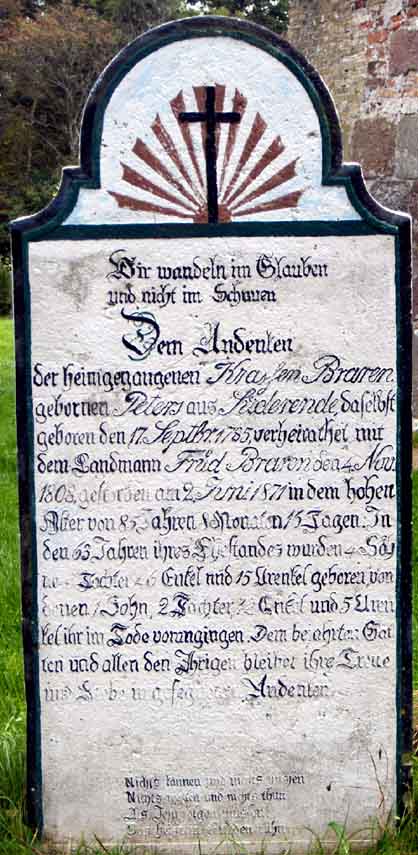 Wir wandeln im Glauben
und nicht im Schauen
Dem Andenken
der heimgegangenen Krassen Braren
gebornen Peters aus Süderende, daselbst
geboren den 17. Septbr. 1785, verheirathet mit
dem Landmann Fråd Braren den 4. Nov.
1808, gestorben am 2. Juni 1871 in dem hohen
Alter von 85 Jahren 8 Monaten 15 Tagen. In
den 63 Jahren ihres Ehestandes wurden 4 Söh
ne Töchter 26 Enkel und 15 Urenkel geboren von
denen 1 Sohn, 2 Töchter, 12 Enkel und 5 Uren
kel ihr im Tode vorangingen. Dem bejahrten Gat
ten und allen den Ihrigen bleibet ihre Treue
und Liebe in gesegneten Andenken.
Nichts können und nichts
Nichts und nichts thun